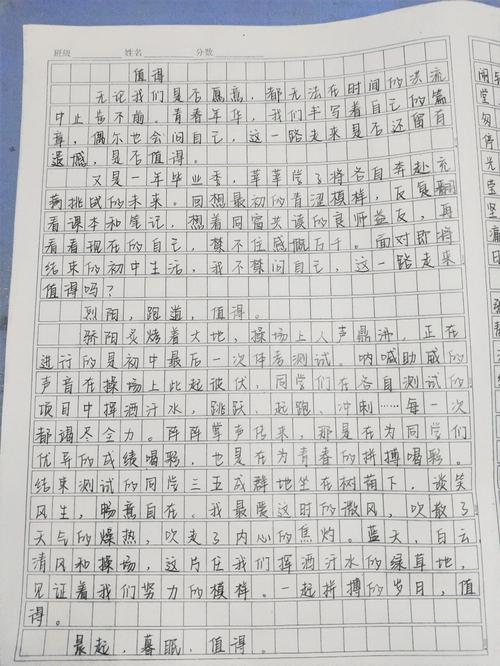 班级 姓名 分数
值得
无论我们是否愿意，都无法在时间的洪流
中止步不前。青春年华，我们书写着自己的篇
章，偶尔也会问自己，这一路走来是否还留有
遗憾，是否值得。
又是一年毕业季，莘莘学子将各自奔赴充
满挑战的未来。回想最初的青涩模样，反复翻
看课本和笔记，想着同窗共读的良师益友，再
看看现在的自己，禁不住感慨万千。面对即将
结束的初中生活，我不禁问自己，这一路走来
值得吗？
烈阳，跑道，值得。
骄阳炙烤着大地，操场上人声鼎沸，正在
进行的是初中最后一次体考测试。呐喊助威的
声音在操场上此起彼伏，同学们在各自测试的
项目中挥洒汗水，跳跃、起跑、冲刺……每一次
都竭尽全力。阵阵掌声传来，那是在为同学们
优异的成绩喝彩，也是在为青春的拼搏喝彩。
结束测试的同学三五成群地坐在树荫下，谈笑
风生，畅意自在。我最爱这时的微风，吹散了
天气的燥热，吹走了内心的焦灼。蓝天，白云
清风和操场，这片任我们挥洒汗水的绿草地，
见证着我们努力的模样。一起拼搏的岁月，值
得。
晨起，暮眠，值得。